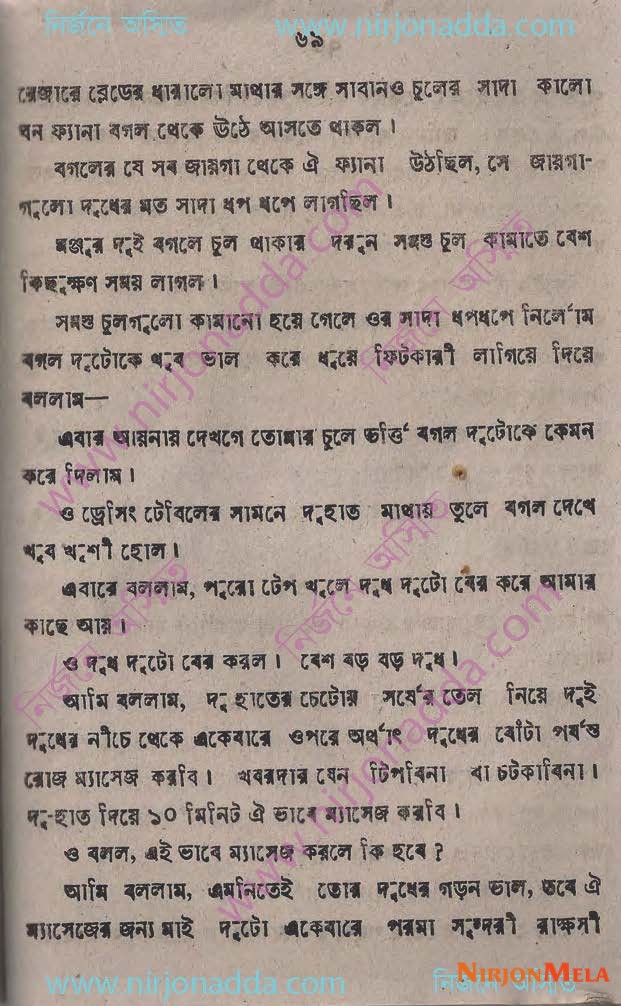 নির্জনে অস্মিত www.nirjonadda.com
৬৯
রেজারে ব্লেডের ধারালো মাথার সঙ্গে সাবানও চুলের সাদা কালো
ঘন ফ্যানা বগল থেকে উঠে আসতে থাকল।
বগলের যে সব জায়গা থেকে ঐ ফ্যানা উঠছিল, সে জায়গা-
গুলো দুধের মত সাদা ধপ ধপে লাগছিল।
মঞ্জুর দুই বগলে চুল থাকার দরুন সমস্ত চুল কামাতে বেশ
কিছুক্ষণ সময় লাগল।
সমস্ত চুলগুলো কামানো হয়ে গেলে ওর সাদা ধপধপে নির্লোম
বগল দুটোকে খুব ভাল করে ধুয়ে ফিটকারী লাগিয়ে দিয়ে
বললাম—
এবার আয়নায় দেখগে তোমার চুলে ভর্ত্তি বগল দুটোকে কেমন
করে দিলাম।
ও ড্রেসিং টেবিলের সামনে দুহাত মাথায় তুলে বগল দেখে
খুব খুশী হোল।
এবারে বললাম, পুরো টেপ খুলে দুধ দুটো বের করে আমার
কাছে আয়।
ও দুধ দুটো বের করল। বেশ বড় বড় দুধ।
আমি বললাম, দু হাতের চেটোয় সর্ষের তেল নিয়ে দুই
দুধের নীচে থেকে একেবারে ওপরে অর্থাৎ দুধের বোঁটা পর্যন্ত
রোজ ম্যাসেজ করবি। খবরদার যেন টিপবিনা বা চটকাবিনা।
দু-হাত দিয়ে ১০ মিনিট ঐ ভাবে ম্যাসেজ করবি।
ও বলল, এই ভাবে ম্যাসেজ করলে কি হবে?
আমি বললাম, এমনিতেই তোর দুধের গড়ন ভাল, তবে ঐ
ম্যাসেজের জন্য মাই দুটো একেবারে পরমা সুন্দরী রাক্ষসী
www.nirjonadda.com নির্জনে অস্মিত
NIRJONMELA